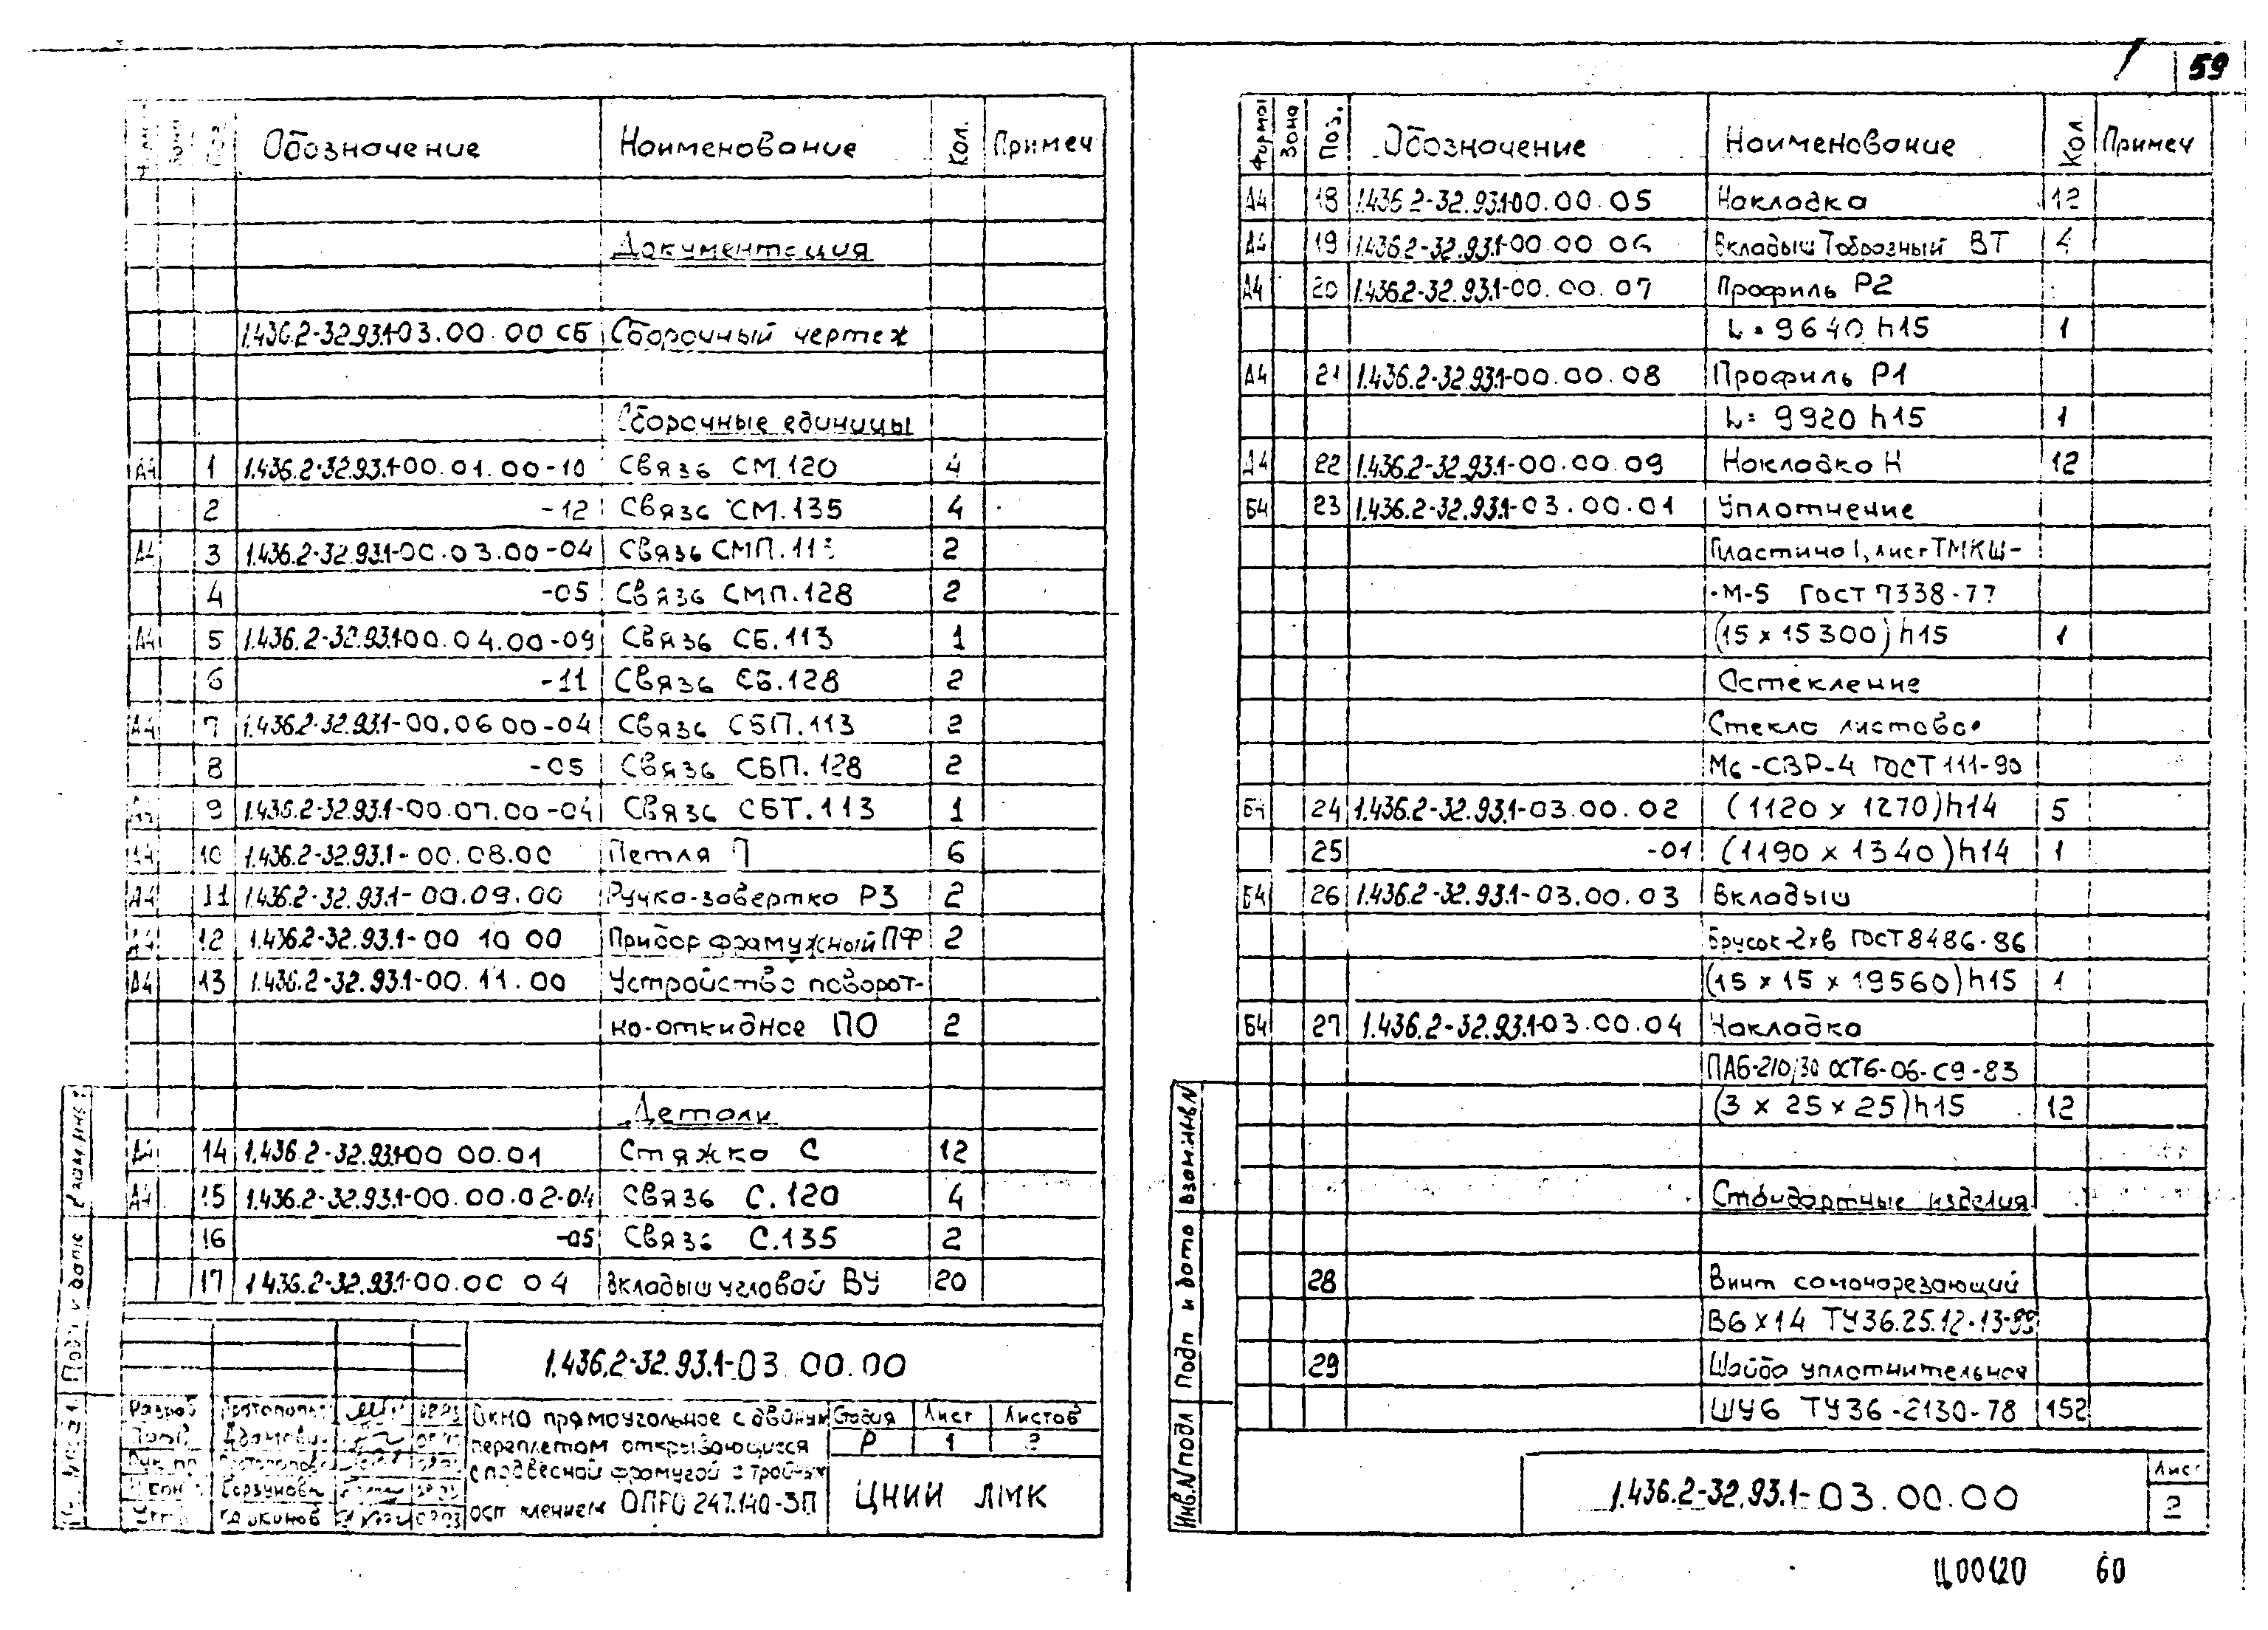 59
Обозначение Наименование Кол. Примеч
Документация
1.436.2-32.93.1-03.00.00 СБ Сборочный чертеж
Сборочные единицы
А4 1 1.436.2-32.93.1-00.01.00-10 Связь СМ.120 4
2 -12 Связь СМ.135 4
А4 3 1.436.2-32.93.1-00.03.00-04 Связь СМП.113 2
4 -05 Связь СМП.128 2
А4 5 1.436.2-32.93.1-00.04.00-09 Связь СБ.113 1
6 -11 Связь СБ.128 2
А4 7 1.436.2-32.93.1-00.06 00-04 Связь СБП.113 2
8 -05 Связь СБП.128 2
А4 9 1.436.2-32.93.1-00.07.00-04 Связь СБТ.113 1
А4 10 1.436.2-32.93.1-00.08.00 Петля П 6
А4 11 1.436.2-32.93.1-00.09.00 Ручка-завертка РЗ 2
А4 12 1.436.2-32.93.1-00 10 00 Прибор фрамужный ПФ 2
А4 13 1.436.2-32.93.1-00.11.00 Устройство поворот-
но-откидное ПО 2
Детали
А4 14 1.436.2-32.93.1-00 00.01 Стяжка С 12
А4 15 1.436.2-32.93.1-00.00.02-04 Связь С.120 4
16 -05 Связь С.135 2
17 1.436.2-32.93.1-00.00 04 Вкладыш угловой ВУ 20
1.436.2-32.93.1-03.00.00
Разраб
Окно прямоугольное с двойным
переплетом открывающееся
с подвесной фрамугой с тройным
остеклением ОПГО 247.140-3П
Стадия Лист Листов
Р 1 2
ЦНИИ ЛМК
Подп и дата
Формат Зона Поз. Обозначение Наименование Кол. Примеч
А4 18 1.436.2-32.93.1-00.00.05 Накладка 12
А4 19 1.436.2-32.93.1-00.00.06 Вкладыш Тобразный ВТ 4
А4 20 1.436.2-32.93.1-00.00.07 Профиль Р2
L = 9640 h15 1
А4 21 1.436.2-32.93.1-00.00.08 Профиль Р1
L = 9920 h15 1
А4 22 1.436.2-32.93.1-00.00.09 Накладка Н 12
Б4 23 1.436.2-32.93.1-03.00.01 Уплотнение
Пластина I, лист ТМКЩ-
-М-5 ГОСТ 7338-77
(15 х 15300) h15 1
Остекление
Стекло листовое
М6-СВР-4 ГОСТ 111-90
Б4 24 1.436.2-32.93.1-03.00.02 (1120 х 1270)h14 5
25 -01 (1190 х 1340)h14 1
Б4 26 1.436.2-32.93.1-03.00.03 Вкладыш
Брусок-2хв ГОСТ 8486-86
(15 х 15 х 19560)h15 1
Б4 27 1.436.2-32.93.1-03.00.04 Накладка
ПА6-210/30 ОСТ6-06-С9-83
(3 х 25 х 25)h15 12
Стандартные изделия
28 Винт самонарезающий
В6х14 ТУ36.25.12-13-
29 Шайба уплотнительная
ШУ6 ТУ36-2130-78 152
1.436.2-32.93.1-03.00.00
Лист
2
Инв.N подл Подп и дата Взам.инв.N
Ц00120 60